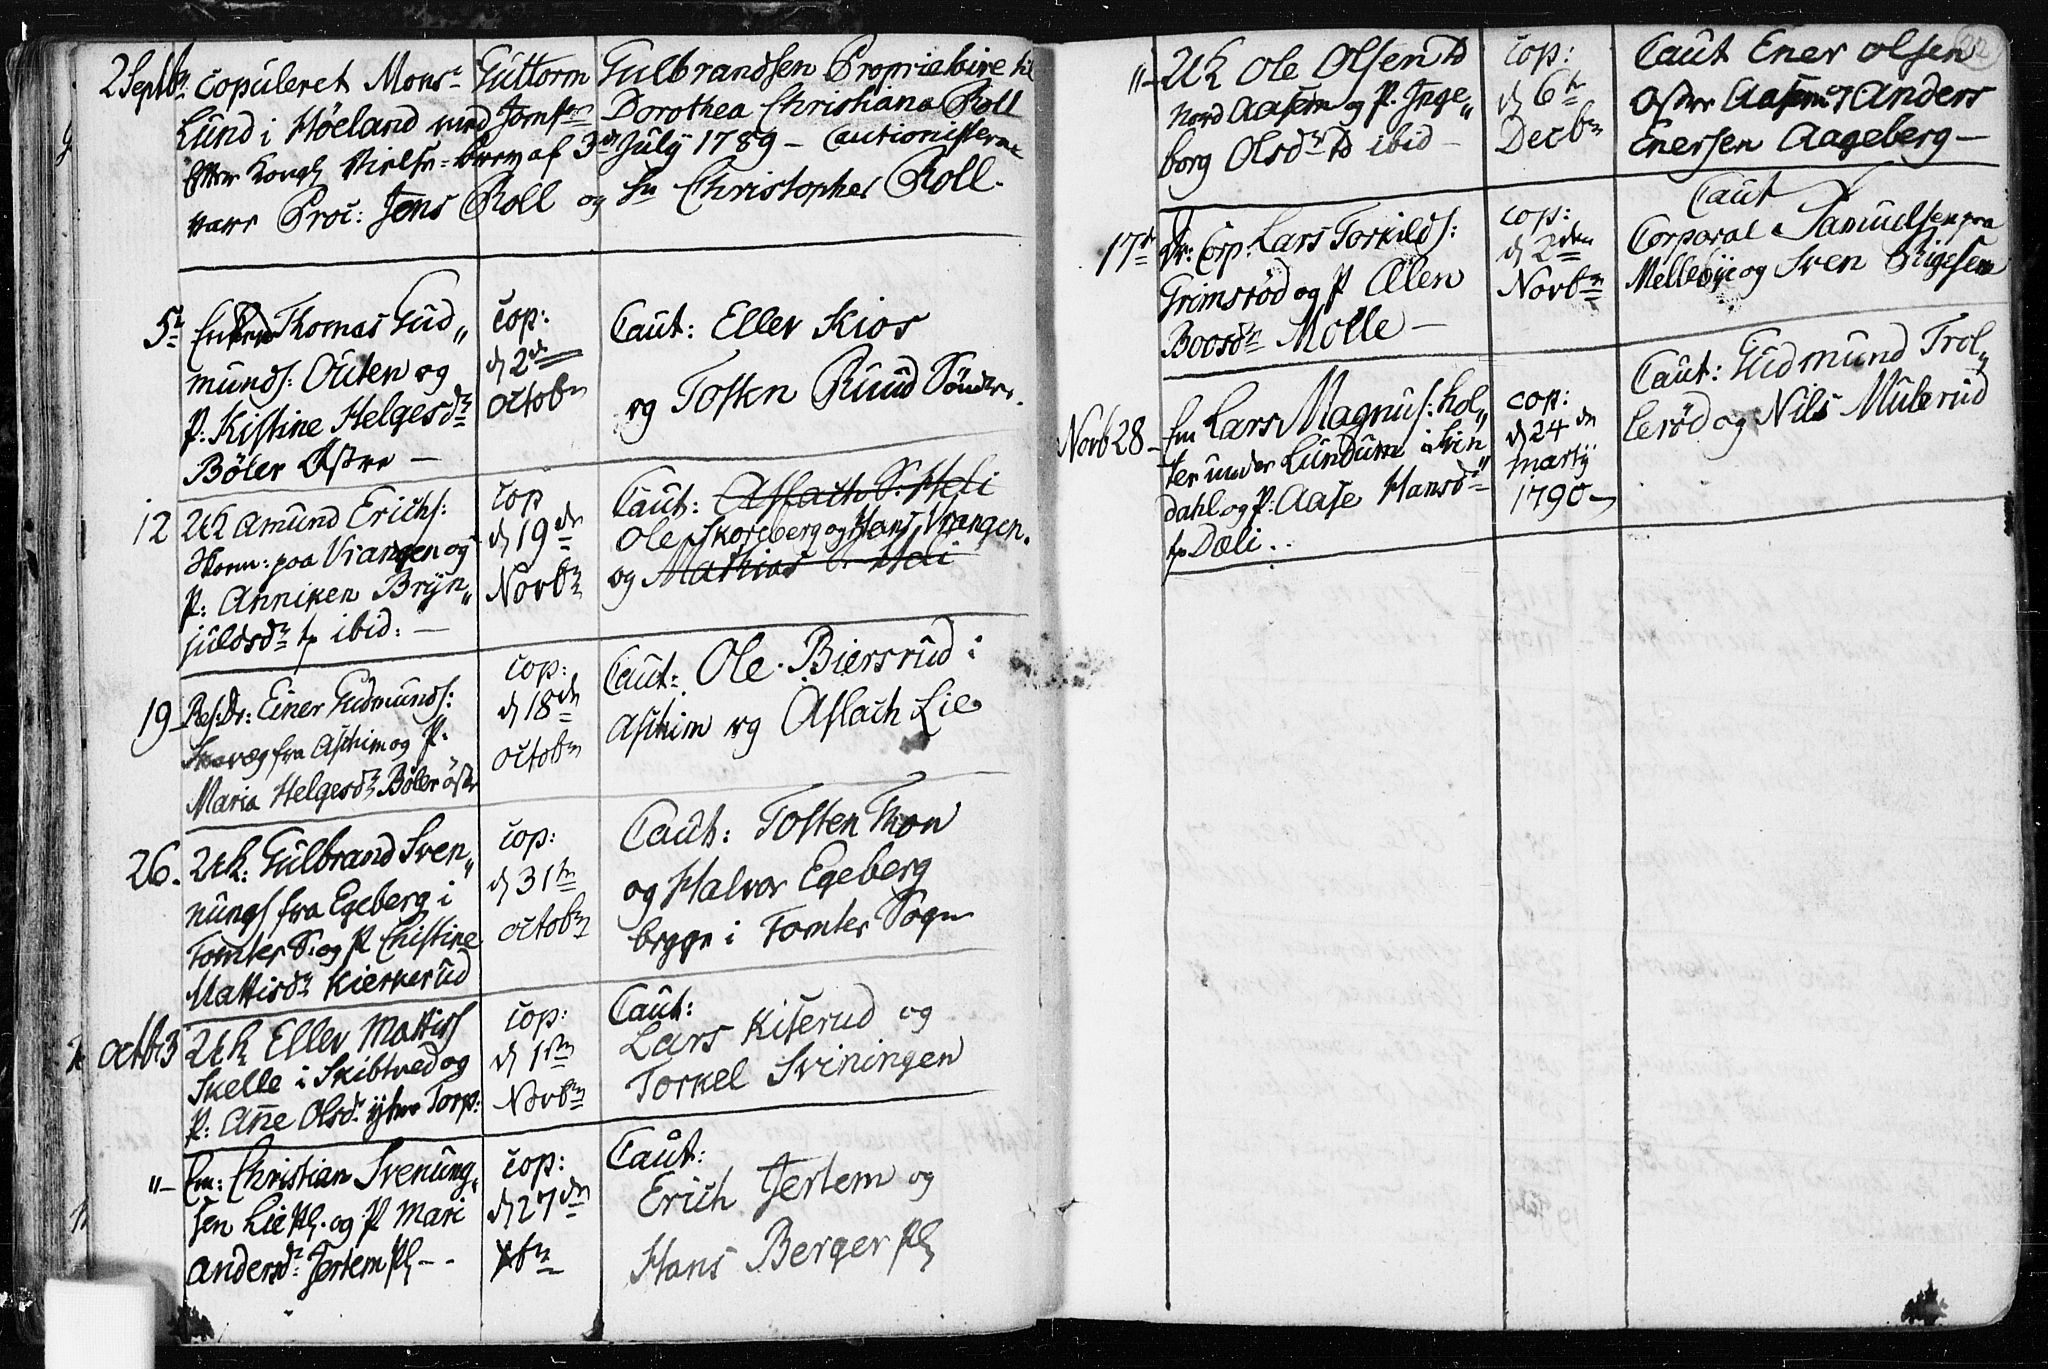 2 Septbr. Copuleret Monsr Guttorm Gulbrandsen Proprietaire til
Lund i Höeland med Jomfr Dorothea Christiana Roll
Efter Kongl Vielse-brev af 3d July 1789 – Cautionisterne
vare Proc: Jens Roll og Sr Christopher Roll.
5te Enkem Thomas Gud„
munds: Outen og
P. Kistine Helgesdr
Böler Østre –
cop:
d 2den
Octobr
Caut: Eller Kios
og Tosten Ruud Söndre.
12 UK Amund Erichs:
Norm: paa Vrangen og
P: Anniken Brÿn„
juldsdr tp ibid: –
cop
d 19de
Novbr
Caut: Aslach S: Heli
Ole Skoreberg og Hans Vrangen.
og Mathias Heli
19 Res: Dr: Einer Gudmunds:
Skavæg fra Aschim og P.
Maria Helgesdr Böler östr
cop:
d 18de
octobr
Caut: Ole Biersrud i
Aschim og Aslach Lie
26. UK: Gulbrand Sven„
nungs fra Egeberg i
Tomter S. og P Christine
Mattisdr Kierkerud
cop:
d 31te
octobr
Caut: Tosten Thon
og Halvor Egeberg
begge i Tomter Sogn
Octb: 3 UK Eller Mattiss
Skelle i Skibtved og
P: Añe Olsdr ytre Torp:
cop:
d 1ste
Novbr
Caut:
Lars Kiserud og
Torkel Sviningen
"– Em: Christian Svenung„
sen Lie Pl. og P Mari
Andersdr Jertem Pl –
cop:
d 27de
Xbr
Caut:
Erich Jertem og
Hans Berger Pl
22
"– UK Ole Olsen td
Nord Aasem og P. Inge„
borg Olsdr td ibid –
cop:
d 6te
Decbr
Caut Ener Olsen
Østre Aasem & Anders
Enersen Aageberg –
17de Dr: Corp: Lars Torkilds:
Grimsröd og P Ælen
Boosdr Molle –
cop:
d 2den
Novbr
Caut
Corporal Samuelsen paa
Mellebye og Sven Rigesem
Novb 28 – Em Lars Magnus: hol„
ter under Lundum i Svin„
dahl og P: Aase Hansdr
tp Dæli.
cop:
d 24de
martij
1790 –
Caut: Gudmund Trol„
leröd og Nils Mulerud